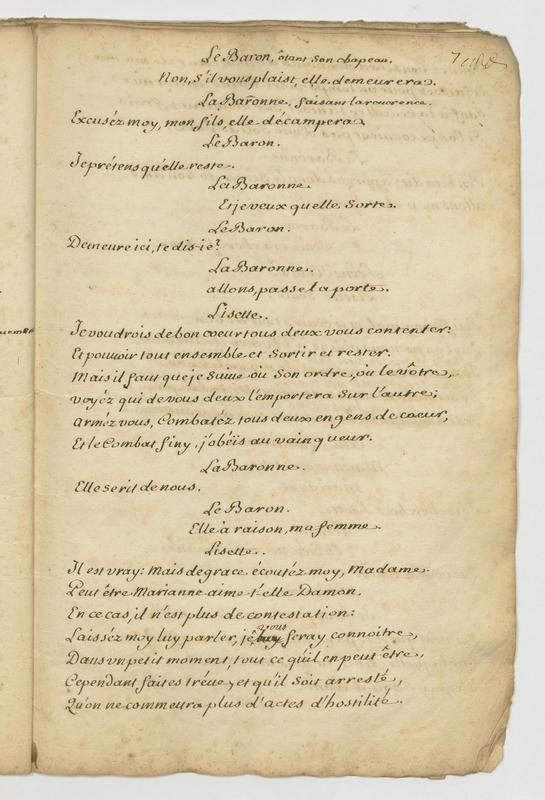 Le Baron, ôtant son chapeau.
Non, s'il vous plaist, elle demeurera.
La Baronne, faisant la reverence.
Excuséz moy, mon fils, elle décampera.
Le Baron.
Je prétens qu'elle reste.
La Baronne.
Et je veux qu'elle sorte.
Le Baron.
Demeure ici, te dis-je?
La Baronne.
allons, passe la porte.
Lisette.
Je voudrois de bon coeur tous deux vous contenter.
Et pouvoir tout ensemble et sortir et rester.
Mais il faut que je suive où son ordre, ou le vôtre,
voyéz qui de vous deux l'emportera sur l'autre;
arméz vous, Combatéz tous deux en gens de coeur,
Et le Combat finy, j'obéis au vainqueur.
La Baronne.
Elle se rit de nous.
Le Baron.
Elle à raison, ma femme.
Lisette.
Il est vray: mais de grace écoutéz moy, Madame.
Peut être Marianne aime t-elle Damon.
En ce cas, il n'est plus de contestation:
Laisséz moy luy parler, je vous feray connoitre,
Dans un petit moment, tout ce qu'il en peut être.
Cependant faites tréve, et qu'il soit arresté,
Qu'on ne commettra plus d'actes d'hostilité.